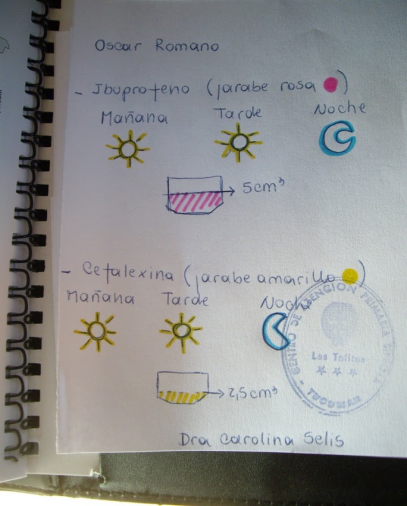 Oscar Romano
- Ibuprofeno (jarabe rosa )
Mañana Tarde Noche
5cm³
- Cefalexina (jarabe amarillo )
Mañana Tarde Noche
2,5cm³
CENTRO DE ATENCION PRIMARIA
Las Talitas
TUCUMAN
Dra Carolina Selis